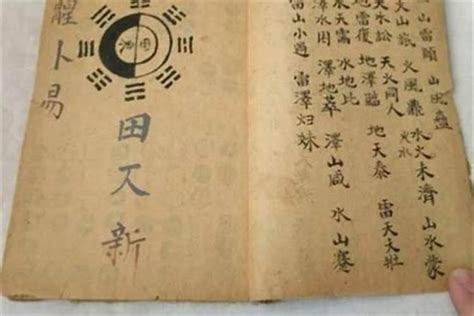 山雷頤 山風蠱
火山旅 火風鼎 水火未濟 山水蒙
火水
天水訟 天火同人
地雷復 地澤臨 地天泰 雷天大壯
水天需 水地比
澤水困 澤地萃 澤山咸 水山蹇
雷山小過 雷澤归妹
醒卜易
田 新